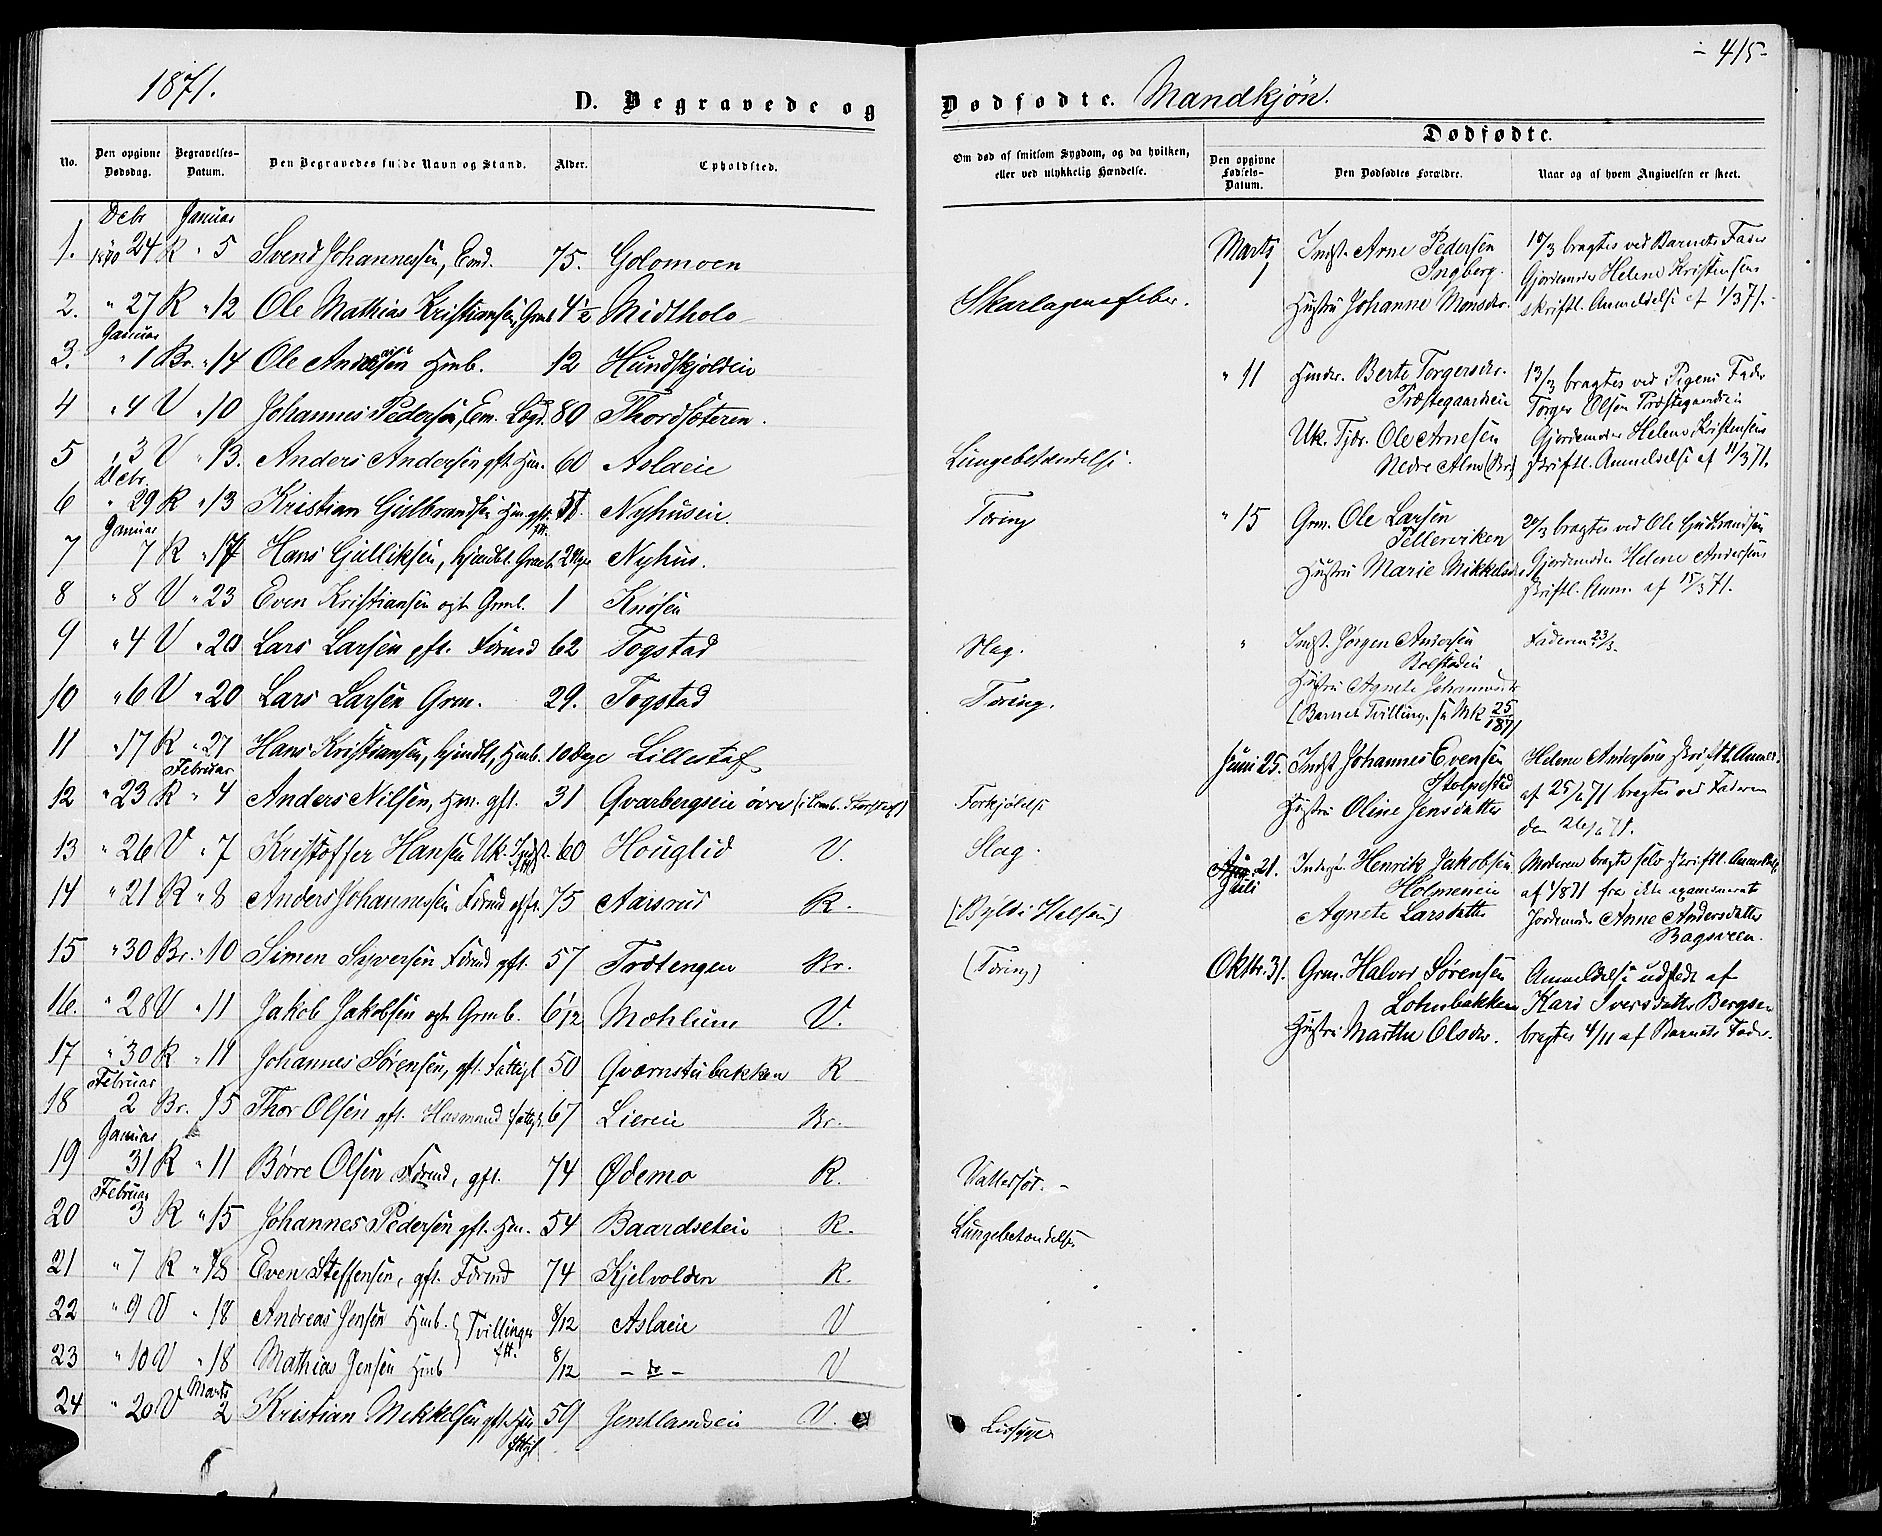 1871.
D. Begravede og
No. Den opgivne Dødsdag. Begravelses-Datum. Den Begravedes fulde Navn og Stand. Alder. Opholdsted.
Debr Januar
1. 1870 24 R " 5 Svend Johannessen, Em. 75. Golomoen
2. " 27 R " 12 Ole Mathias Kristiansen, Grmb 4 1/2 Midtholo
Januar
3. " 1 Br. " 14 Ole Andersen Hmb. 12 Hundskjoldeie
4 " 4 V " 10 Johannes Pedersen, Em. Lægd. 80 Thordsæteren.
5 " 3 V " 13. Anders Andersen gft. Hm. 60 Aslaeie
Debr.
6 " 29 R " 13 Kristian Gulbrandsen Hm gft. 51. Nyhuseie
Januar ftt.
7 7 R " 17 Hans Gulliksen, hjemdbt. Grmb. Nyhus.
8 " 8 V " 23 Even Kristiansen ægte Grmb. 1 Knøsen
9 " 4 V " 20 Lars Larsen gft. Førmd 62 Togstad
10 " 6 V " 20 Lars Larsen Grm. 29. Togstad
11 " 17 R " 27 Hans Kristiansen, hjemdbt, Hmb. 10 Dage Lillestaf
Februar
12 " 23 R " 4 Anders Nilsen, Hm. gft. 31 Qvarbergseie øvre
13 " 26 V " 7 Kristoffer Hansen Uk. Indst. 60 Houglid V.
ftt
14 " 21 R " 8 Anders Johannessen Førmd gft. 75 Aasrud R.
15 " 30 Br. " 10 Simen Syversen Førmd gft. 57 Trætengen Br.
16. " 28 V " 11 Jakob Jakobsen ægte Grmb. 6/12 Mæhlum V.
17 " 30 R " 11 Johannes Sørensen, gft. Fattigl 50 Qværnstubakken R
Februar
18 2 Br. 15 Thor Olsen gft. Husmand fattigl. 67 Liereie Br.
Januar
19 31 R " 11 Børre Olsen Førmd, gft. 74 Ødemo R.
Februar
20 3 R " 15 Johannes Pedersen gft. Hm. 54 Baardseteie R.
21 " 7 R " 18 Even Steffensen, gft. Førmd 74 Kjelvolden R.
22 " 9 V " 18 Andreas Jensen Hmb. } Tvillinger 8/12 Aslaeie V
ftt.
23 " 10 V " 18 Mathias Jensen Hmb 8/12 - do - V
Marts
24 " 20 V 2 Kristian Mikkelsen gft. Hm 59 Jemtlandseie V.
fattigl
- 415 -
Dødfødte. Mandkjøn.
Om død af smitsom Sygdom, og da hvilken, eller ved ulykkelig Hændelse.
Dødfødte.
Den opgivne Fødsels-Datum. Den Dødfødtes Forældre. Naar og af hvem Angivelsen er skeet.
Skarlagensfeber.
Lungebetændelse.
Tæring
Slag.
Tæring.
Forkjølelse
Slag.
(Byld i Halsen)
(Tæring)
Vattersot. -
Lungebetændelse
Marts 1 Indst. Arne Pedersen 10/3 bragtes ved Barnets Fader
Ingberg. Gjordemoder Helene Kristensens
Hustru Johanne Monsdr. skriftl. Anmeldelse af 1/3 71.
" 11 Hmdtr. Berte Torgersdr. 13/3 bragtes ved Pigens Fader
Præstegaardseie Torger Olsen Præstegaardseie
Uk. Tjdr. Ole Arnesen Gjordemoder Helene Kristensens
Nedre Alm (Br.) skriftl. Anmeldelse af 11/3 71.
" 15 Grm. Ole Larsen 20/3 bragtes ved Ole Gudbrandsen
Pellerviken Gjordemoder Helene Andersens
Hustru Marie Mikkelsdr skriftl. Anm. af 15/3 71.
" Indst. Jørgen Andersen Faderen 23/3.
Bolstadeie
Hustru Agnete Johannesdr
(Barnet Tvilling, se Mk 25/1871
Juni 25. Indst Johannes Evensen Helene Andersens skriftl. Anmel.
Stolpestad af 25/6 71 bragtes ved Faderen
Hustru Oline Jensdatter den 26/6 71.
Juli 21. Inderst Henrik Jakobsen Moderen bragte selv skriftl. Anmeldelse
Holmeneie af 4/8 71 fra ikke examineret
Agnete Larsdatter Jordemoder Anne Andersdatter
Bagsveen.
Oktbr. 31. Grm. Halvor Sørensen Anmeldelse udstedt af
Lohnbakken Kari Iversdatter Bergsen
Hustru Marthe Olsdtr. bragtes 4/11 af Barnets Fader.